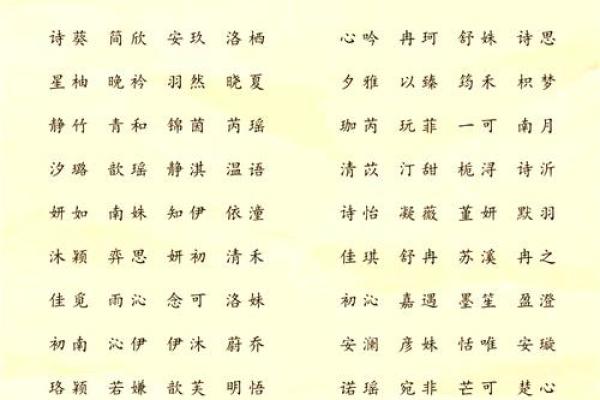 诗葵 简欣 安玖 洛栖 心吟 冉珂 舒姝 诗思
星柚 晚衿 羽然 晓夏 夕雅 以臻 筠禾 枳梦
静竹 青和 锦茵 芮瑶 珈芮 玩菲 一可 南月
汐璐 歆瑶 静淇 温语 清苡 汀甜 栀浔 诗沂
妍如 南姝 知伊 依潼 诗怡 凝薇 堇妍 默羽
沐颖 弈思 妍初 清禾 佳琪 舒冉 苏溪 冉之
佳觅 雨沁 念可 洛姝 初沁 嘉遇 墨笙 盈澄
初南 沁伊 伊沐 蔚乔 安澜 彦姝 恬唯 安璇
珞颖 若嫌 歆芙 明悟 诺瑶 宛非 芒可 楚心